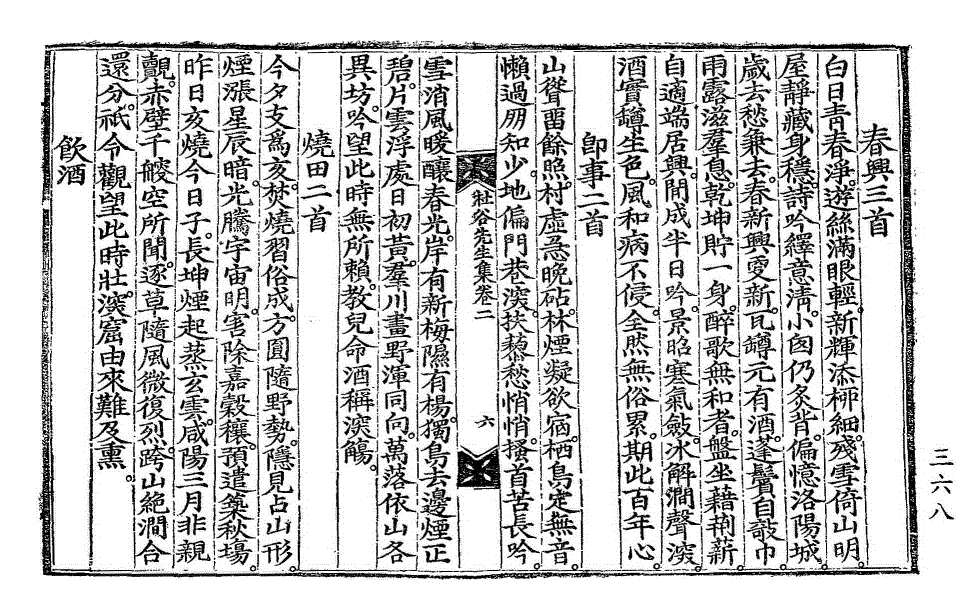 春興三首
白日靑春淨。遊絲滿眼輕。新輝添柳細。殘雪倚山明。
屋靜藏身穩。詩吟繹意淸。小囱仍炙背。偏憶洛陽城。
歲去愁兼去。春新興更新。瓦罇元有酒。蓬鬢自敧巾。
雨露滋羣息。乾坤貯一身。醉歌無和者。盤坐藉荊薪。
自適端居興。閒成半日吟。景昭寒氣斂。氷解澗聲深。
酒實罇生色。風和病不侵。全然無俗累。期此百年心。
卽事二首
山聳留餘照。村虛急晩砧。林煙凝欲宿。栖鳥定無音。
懶過朋知少。地偏門巷深。扶藜愁悄悄。搔首苦長吟。
社谷先生集卷二
六
雪消風暖釀春光。岸有新梅隰有楊。獨鳥去邊煙正
碧。片雲浮處日初黃。羣川畫野渾同向。萬落依山各
異坊。吟望此時無所賴。敎兒命酒稱深觴。
燒田二首
今夕支爲亥。焚燒習俗成。方圓隨野勢。隱見占山形。
煙漲星辰暗。光騰宇宙明。害除嘉穀穰。預遣築秋場。
昨日亥燒今日子。長坤煙起蒸玄雲。咸陽三月非親
覿。赤壁千艘空所聞。逐草隨風微復烈。跨山絶澗合
還分。祇今觀望此時壯。深窟由來難及熏。
飮酒
三六八